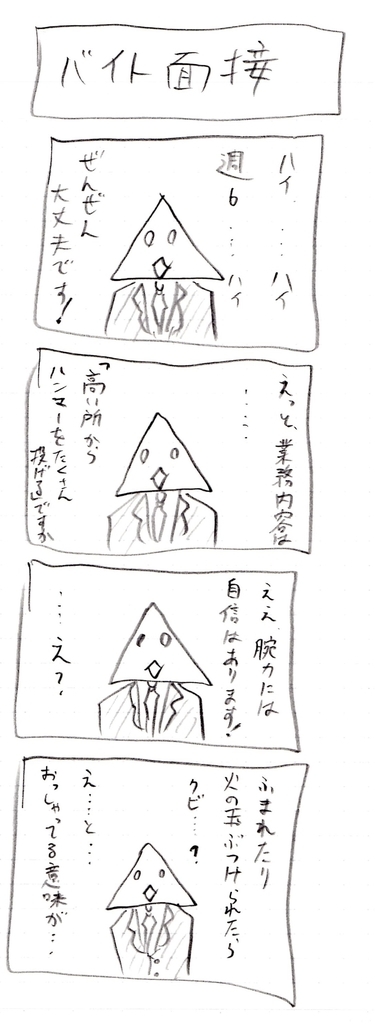 バイト面接
ハイ……ハイ
週6……ハイ
ぜんぜん
大丈夫です!
えっと、業務内容は
……
「高い所から
ハンマーをたくさん
投げる」ですか
ええ、腕力には
自信はあります!
……え?
ふまれたり
火の玉ぶつけられたら
クビ……?
え……と…
おっしゃってる意味が…